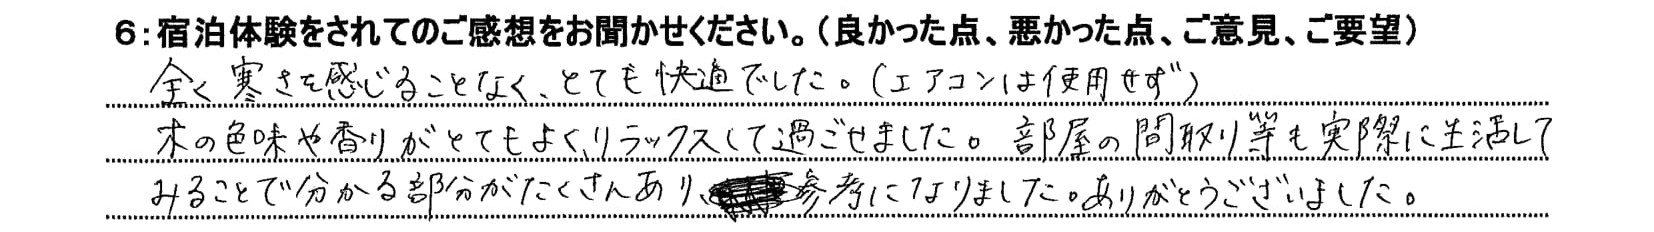 6：宿泊体験をされてのご感想をお聞かせください。（良かった点、悪かった点、ご意見、ご要望）
全く寒さを感じることなく、とても快適でした。（エアコンは使用せず）
木の色味や香りがとてもよく、リラックスして過ごせました。部屋の間取り等も実際に生活して
みることで分かる部分がたくさんあり、参考になりました。ありがとうございました。